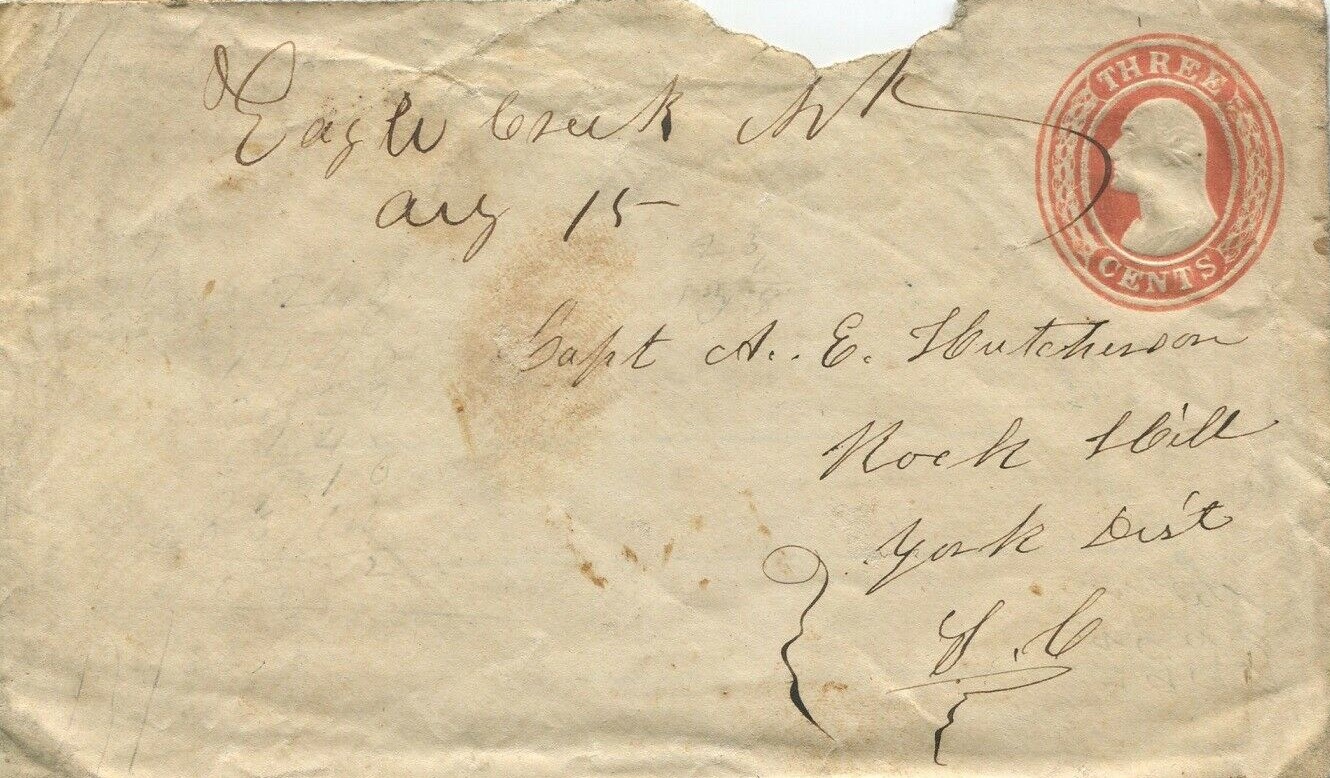 Eagle Creek Ark
Aug 15
THREE
CENTS
Capt A. E. Hutcheson
Rock Hill
York Dist
S. C